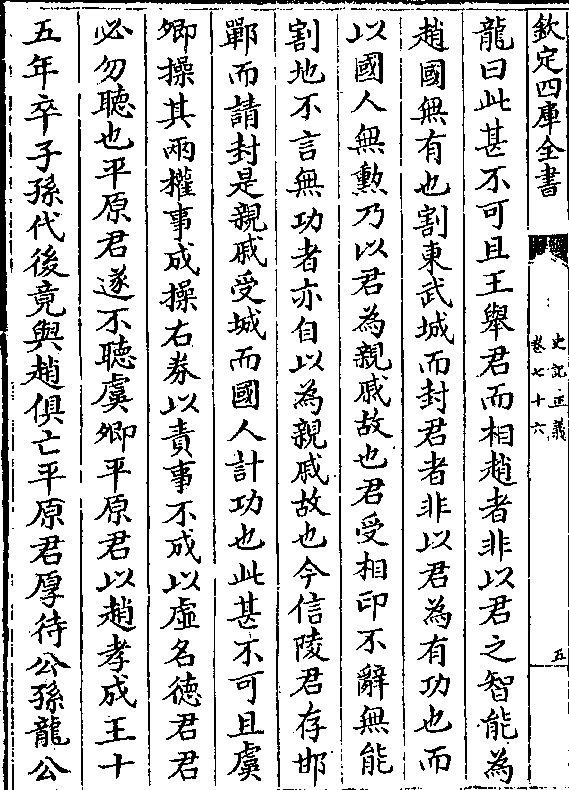 欽定四庫全書
史記正義
卷七十六
五
龍曰此甚不可且王舉君而相趙者非以君之智能為
趙國無有也割東武城而封君者非以君為有功也而
以國人無勲乃以君為親戚故也君受相印不辭無能
割地不言無功者亦自以為親戚故也今信陵君存邯
鄲而請封是親戚受城而國人計功也此甚不可且虞
卿操其兩權事成操右券以責事不成以虚名德君君
必勿聽也平原君遂不聽虞卿平原君以趙孝成王十
五年卒子孫代後竟與趙俱亡平原君厚待公孫龍公